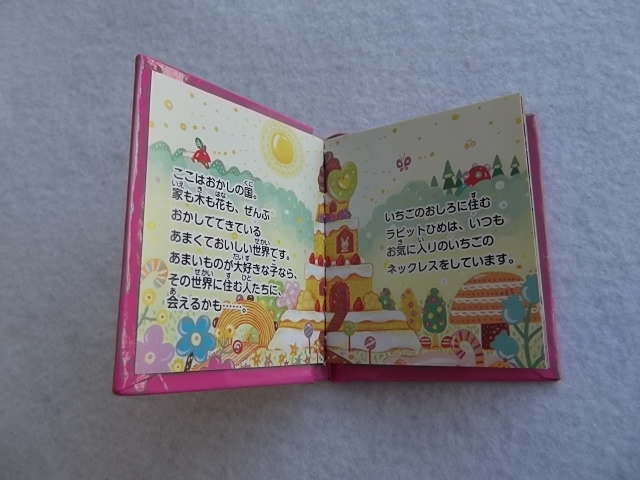 ここはおかしの国。
家も木も花も、ぜんぶ
おかしてできている
あまくておいしい世界です。
あまいものが大好きな子なら、
その世界に住む人たちに、
会えるかも……。
いちごのおしろに住む
ラビットひめは、いつも
お気に入りのいちごの
ネックレスをしています。